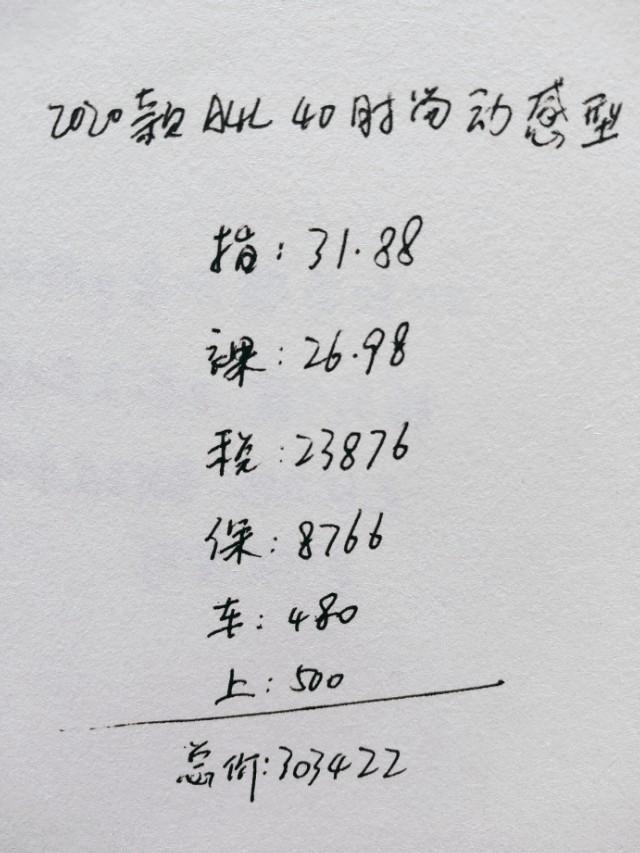 2020款A4L 40时尚动感型
指:31.88
裸:26.98
税:23876
保:8766
车:480
上:500
总价:303422